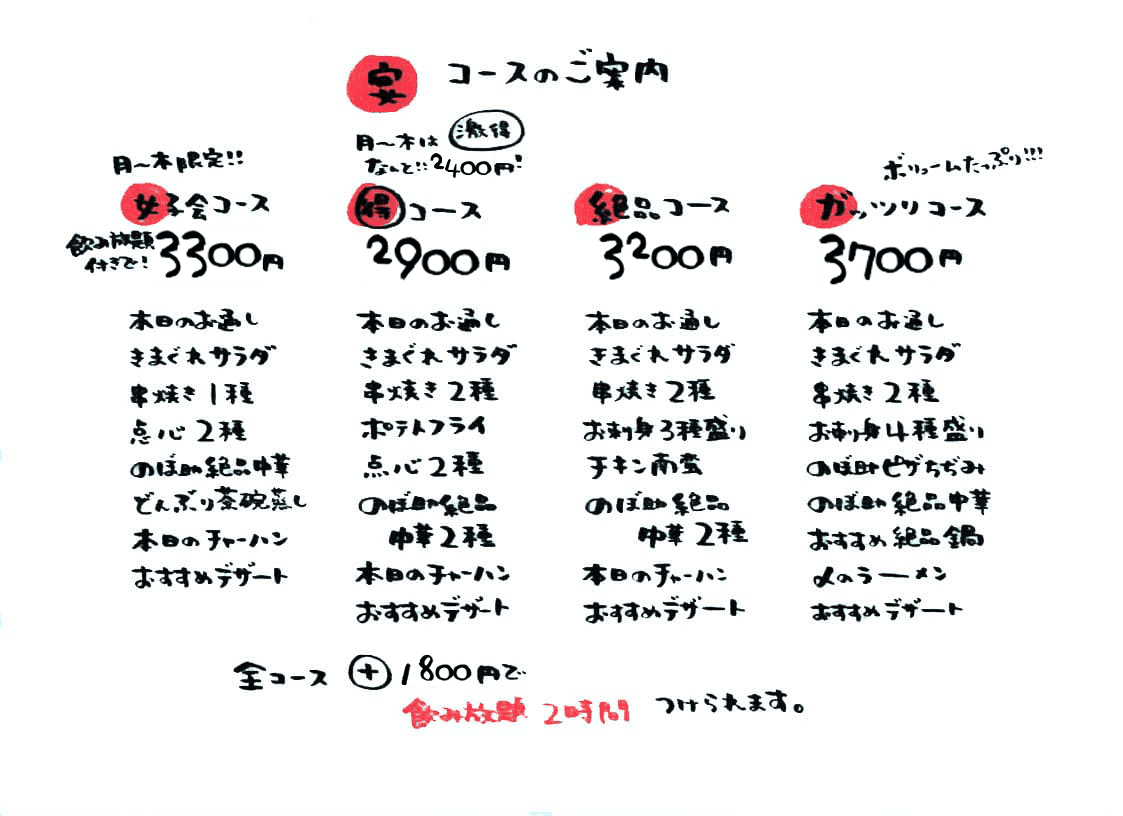 宴 コースのご案内
月〜木限定!!
女子会コース
飲み放題
付きで!
3300円
本日のお通し
きまぐれサラダ
串焼き1種
点心2種
のぼ助絶品中華
どんぶり茶碗蒸し
本日のチャーハン
おすすめデザート
月〜木は 激得
なんと!! 2400円!
得コース
2900円
本日のお通し
きまぐれサラダ
串焼き2種
ポテトフライ
点心2種
のぼ助絶品
中華2種
本日のチャーハン
おすすめデザート
絶品コース
3200円
本日のお通し
きまぐれサラダ
串焼き2種
お刺身3種盛り
チキン南蛮
のぼ助絶品
中華2種
本日のチャーハン
おすすめデザート
ボリュームたっぷり!!!
ガッツリコース
3700円
本日のお通し
きまぐれサラダ
串焼き2種
お刺身4種盛り
のぼ助ピザちぢみ
のぼ助絶品中華
おすすめ絶品鍋
〆のラーメン
おすすめデザート
全コース + 1800円で
飲み放題 2時間 つけられます。